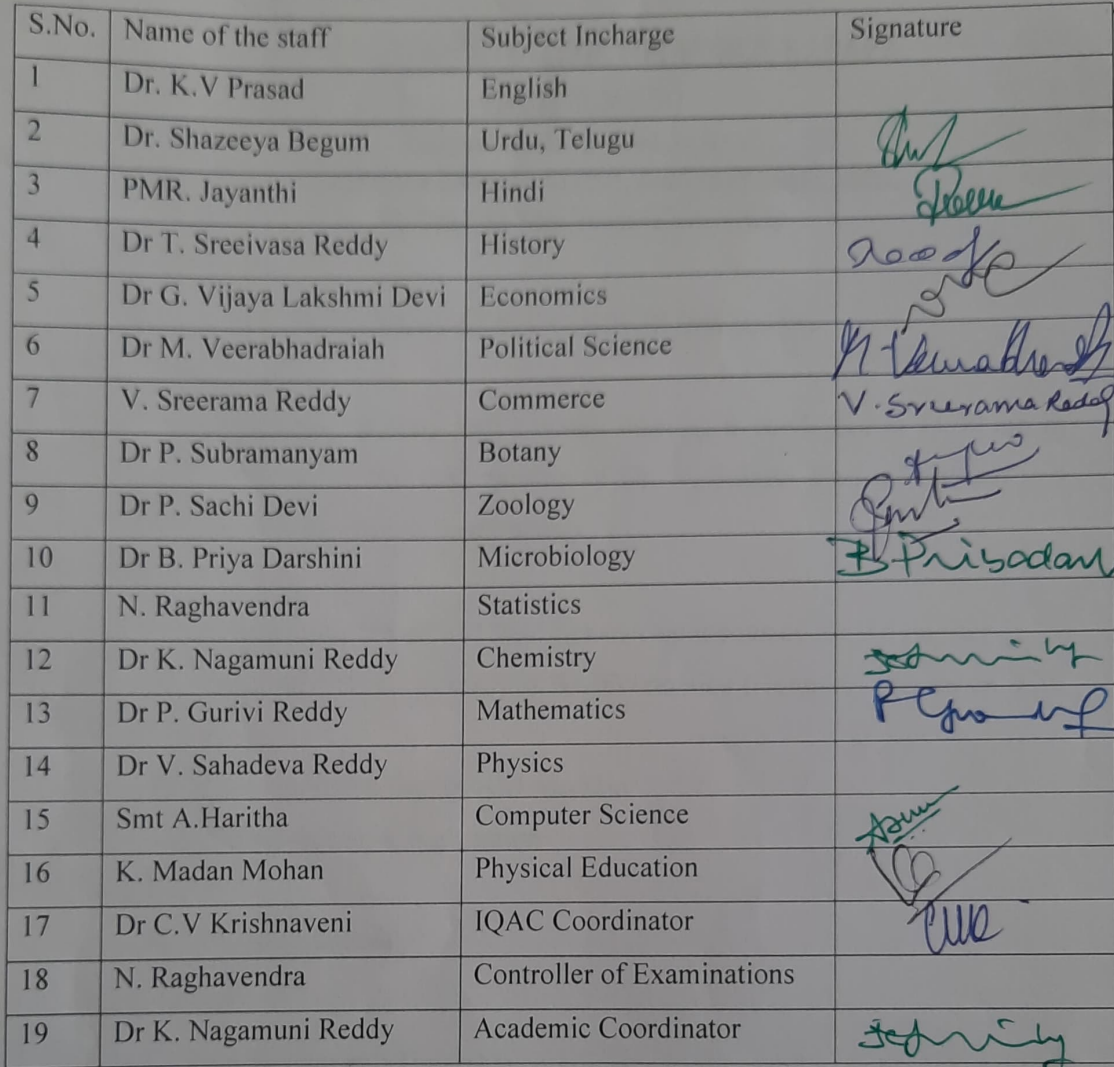 S.No. Name of the staff Subject Incharge Signature
1 Dr. K.V Prasad English
2 Dr. Shazeeya Begum Urdu, Telugu
3 PMR. Jayanthi Hindi
4 Dr T. Sreeivasa Reddy History
5 Dr G. Vijaya Lakshmi Devi Economics
6 Dr M. Veerabhadraiah Political Science
7 V. Sreerama Reddy Commerce V. Sreerama Reddy
8 Dr P. Subramanyam Botany
9 Dr P. Sachi Devi Zoology
10 Dr B. Priya Darshini Microbiology
11 N. Raghavendra Statistics
12 Dr K. Nagamuni Reddy Chemistry
13 Dr P. Gurivi Reddy Mathematics
14 Dr V. Sahadeva Reddy Physics
15 Smt A.Haritha Computer Science
16 K. Madan Mohan Physical Education
17 Dr C.V Krishnaveni IQAC Coordinator
18 N. Raghavendra Controller of Examinations
19 Dr K. Nagamuni Reddy Academic Coordinator